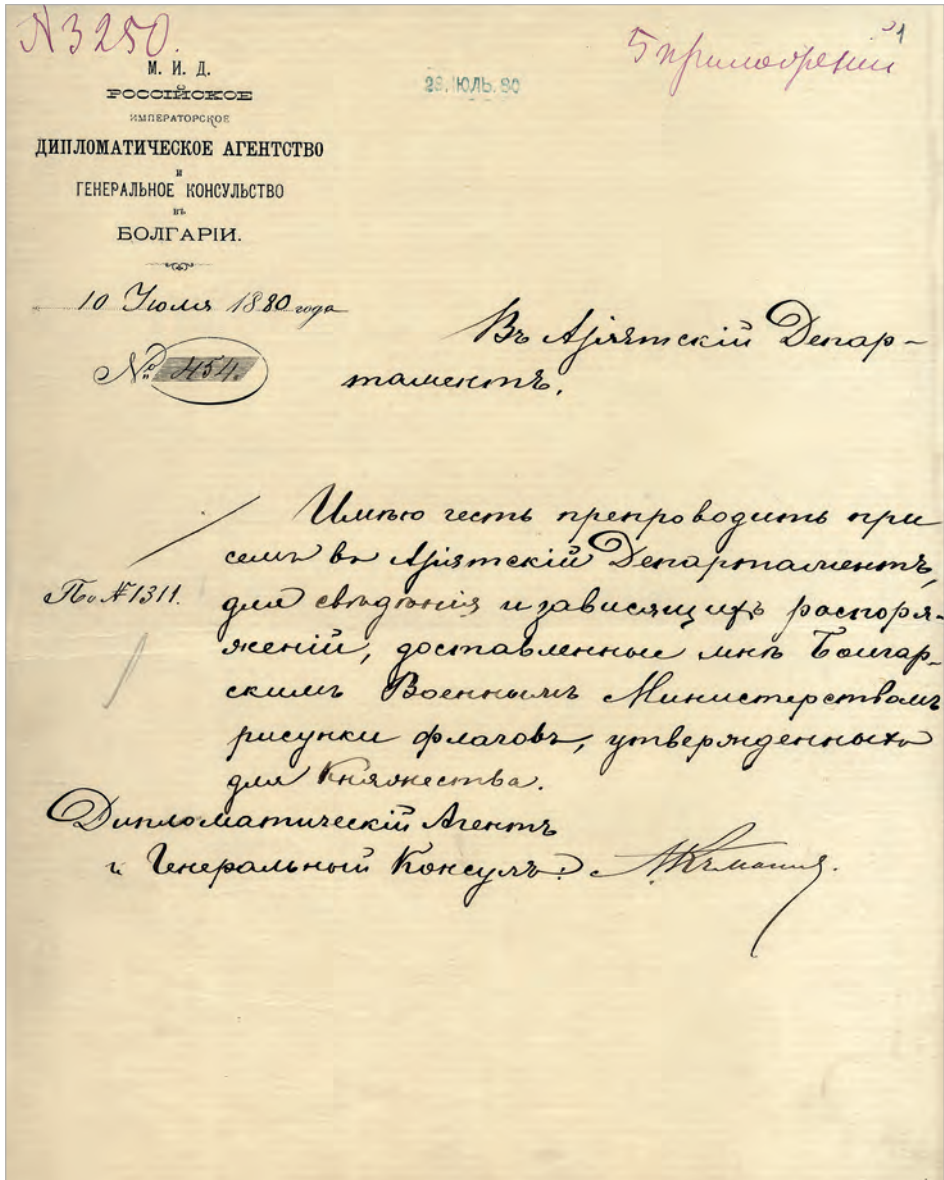 N 3250.
5 приложеній
1
М. И. Д.
РОССІЙСКОЕ
ИМПЕРАТОРСКОЕ
ДИПЛОМАТИЧЕСКОЕ АГЕНТСТВО
и
ГЕНЕРАЛЬНОЕ КОНСУЛЬСТВО
въ
БОЛГАРІИ.
28. ІЮЛЬ. 80
10 Іюля 1880 года
№ 454.
Въ Азіятскій Депар-
таментъ.
Имѣю честь препроводить при
семъ въ Азіятскій Департаментъ,
По № 1311.
для свѣдѣнія и зависящихъ распоря-
женій, доставленные мнѣ Болгар-
скимъ Военнымъ Министерствомъ
рисунки флаговъ, утвержденныхъ
для Княжества.
Дипломатическій Агентъ
и Генеральный Консулъ: